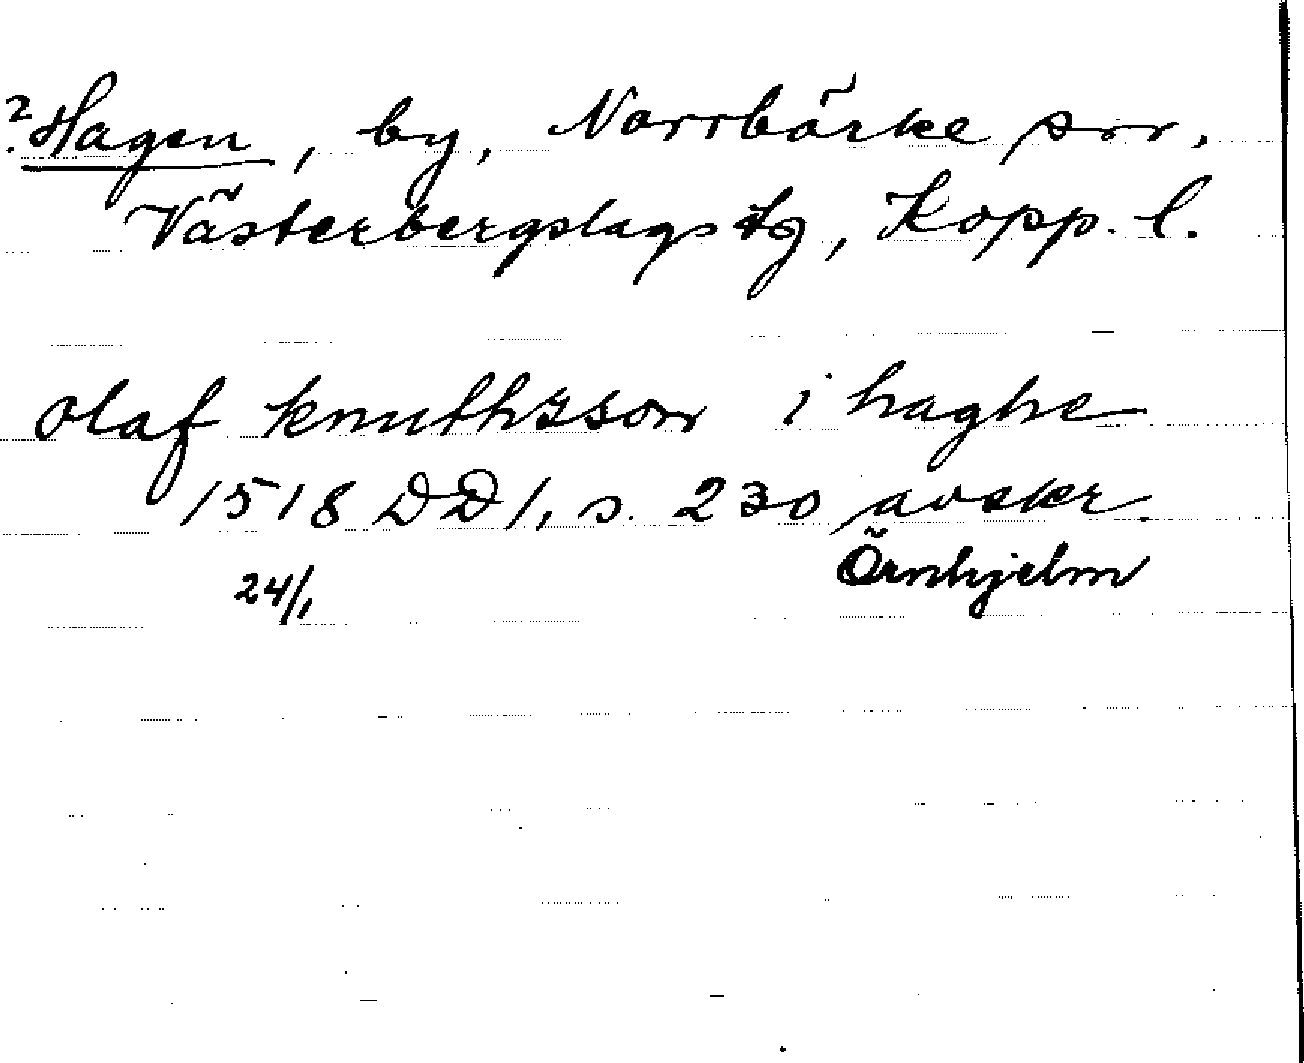 ? Hagen, by, Norrbärke sn,
Västerbergslags tg, Kopp. l.
olaf knuthzson i haghe
1518 DD 1, s. 230 avskr.
Örnhjelm
24/1